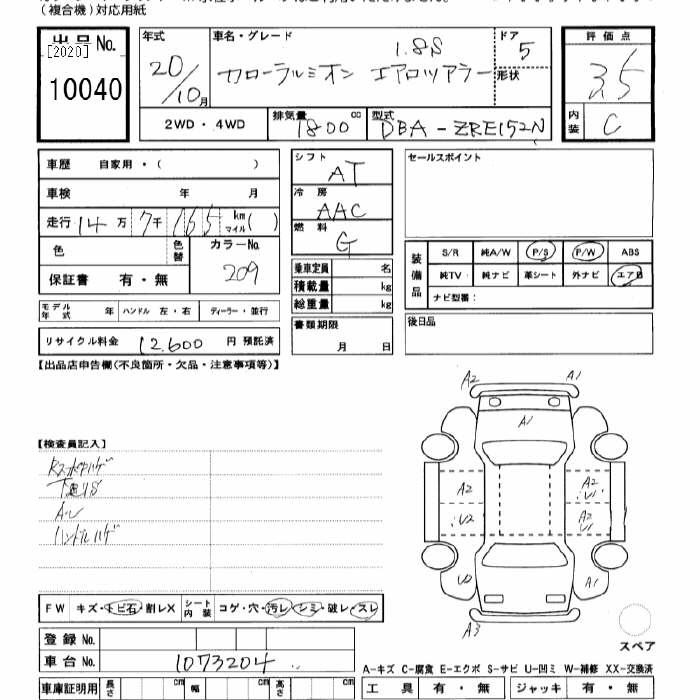 (複合機)対応用紙
出品 No.
[2020]
10040
年式
20/10月
車名・グレード
1.8S
カローラルミオン エアロツアラー
ドア
5
形状
評価点
3.5
内装
C
2WD・4WD
排気量
1800 cc
型式
DBA-ZRE152N
車歴 自家用・( )
車検 年 月
走行 14万 7千 165 km マイル( )
色
色替
カラーNo.
209
保証書 有・無
シフト
AT
冷房
AAC
燃料
G
乗車定員 名
積載量 kg
総重量 kg
書類期限
月 日
セールスポイント
装備品
S/R 純A/W P/S P/W ABS
純TV 純ナビ 革シート 外ナビ エアB
ナビ型番:
後日品
モデル年式 年 ハンドル 左・右 ディーラー・並行
リサイクル料金 12,600 円 預託済
【出品店申告欄(不良箇所・欠品・注意事項等)】
【検査員記入】
下廻りS
ハンドルハゲ
A2 A1
A1
A2 A2 U1
U2 A2 U1
U2 A1
A3
スペア
FW キズ・トビ石・割レX シート内装 コゲ・穴・汚レ・シミ・破レ・スレ
登録 No.
車台 No. 1073204
A-キズ C-腐食 E-エクボ S-サビ U-凹ミ W-補修 XX-交換済
車庫証明用 長さ cm 幅 cm 高さ cm
工具 有・無 ジャッキ 有・無